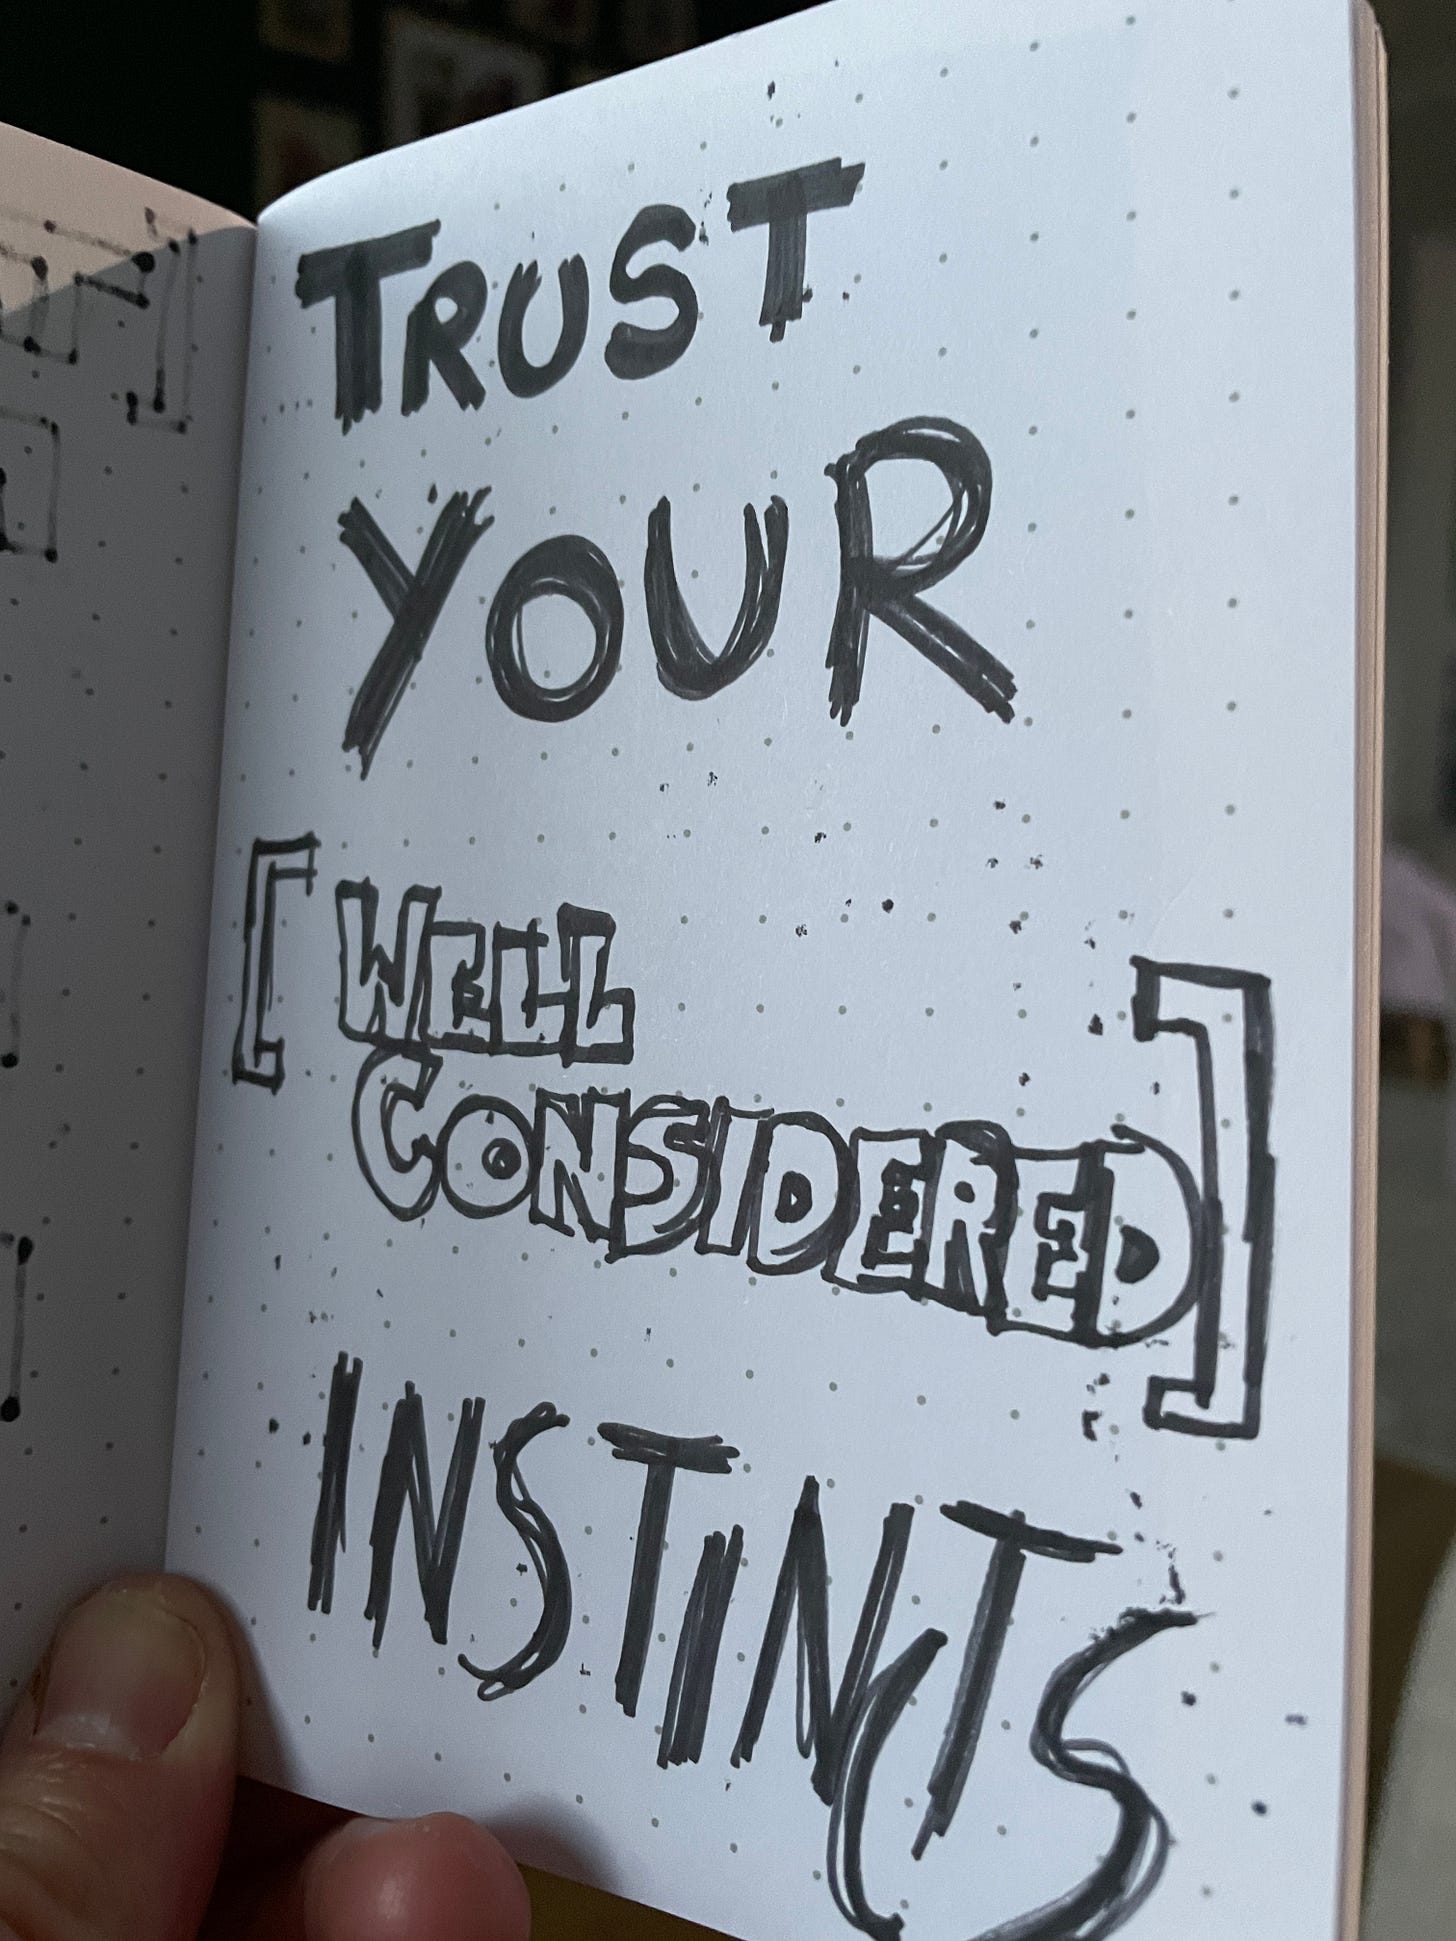 TRUST
YOUR
[WELL
CONSIDERED]
INSTINCTS